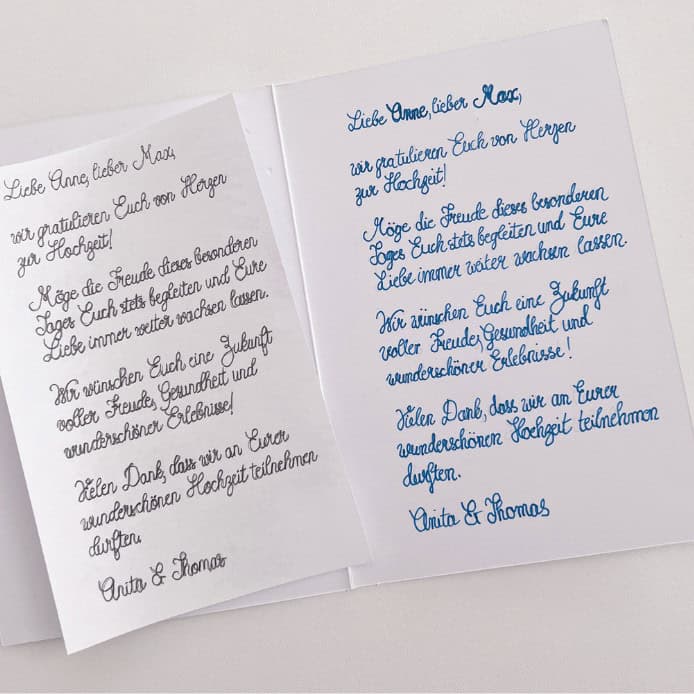 Liebe Anne, lieber Max,
wir gratulieren Euch von Herzen
zur Hochzeit!
Möge die Freude dieses besonderen
Tages Euch stets begleiten und Eure
Liebe immer weiter wachsen lassen.
Wir wünschen Euch eine Zukunft
voller Freude, Gesundheit und
wunderschöner Erlebnisse!
Vielen Dank, dass wir an Eurer
wunderschönen Hochzeit teilnehmen
durften.
Anita & Thomas
Liebe Anne, lieber Max,
wir gratulieren Euch von Herzen
zur Hochzeit!
Möge die Freude dieses besonderen
Tages Euch stets begleiten und Eure
Liebe immer weiter wachsen lassen.
Wir wünschen Euch eine Zukunft
voller Freude, Gesundheit und
wunderschöner Erlebnisse!
Vielen Dank, dass wir an Eurer
wunderschönen Hochzeit teilnehmen
durften.
Anita & Thomas